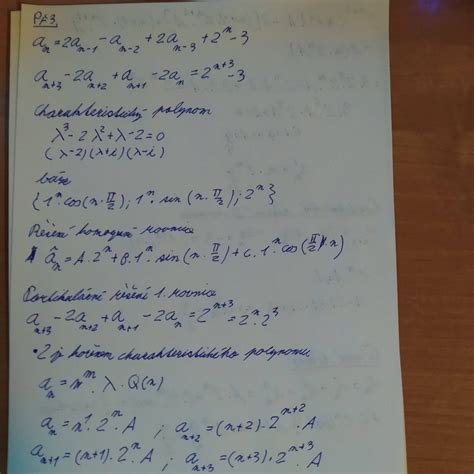 Př3,
a_n = 2a_{n-1} - a_{n-2} + 2a_{n-3} + 2^n - 3
a_{n+3} - 2a_{n+2} + a_{n+1} - 2a_n = 2^{n+3} - 3
Charakteristický polynom
λ^3 - 2λ^2 + λ - 2 = 0
(λ-2)(λ+i)(λ-i)
báze
{1^n·cos(n·π/2); 1^n·sin(n·π/2); 2^n}
Řešení homogenní rovnice
â_n = A·2^n + B·1^n·sin(n·π/2) + C·1^n·cos(π/2·n)
Partikulární řešení 1. rovnice
a_{n+3} - 2a_{n+2} + a_{n+1} - 2a_n = 2^{n+3} = 2^n·2^3
• 2 je kořenem charakteristického polynomu
a_n = n^m·λ·Q(n)
a_n = n^1·2^n·A ; a_{n+2} = (n+2)·2^{n+2}·A
a_{n+1} = (n+1)·2^n·A ; a_{n+3} = (n+3)·2^{n+3}·A